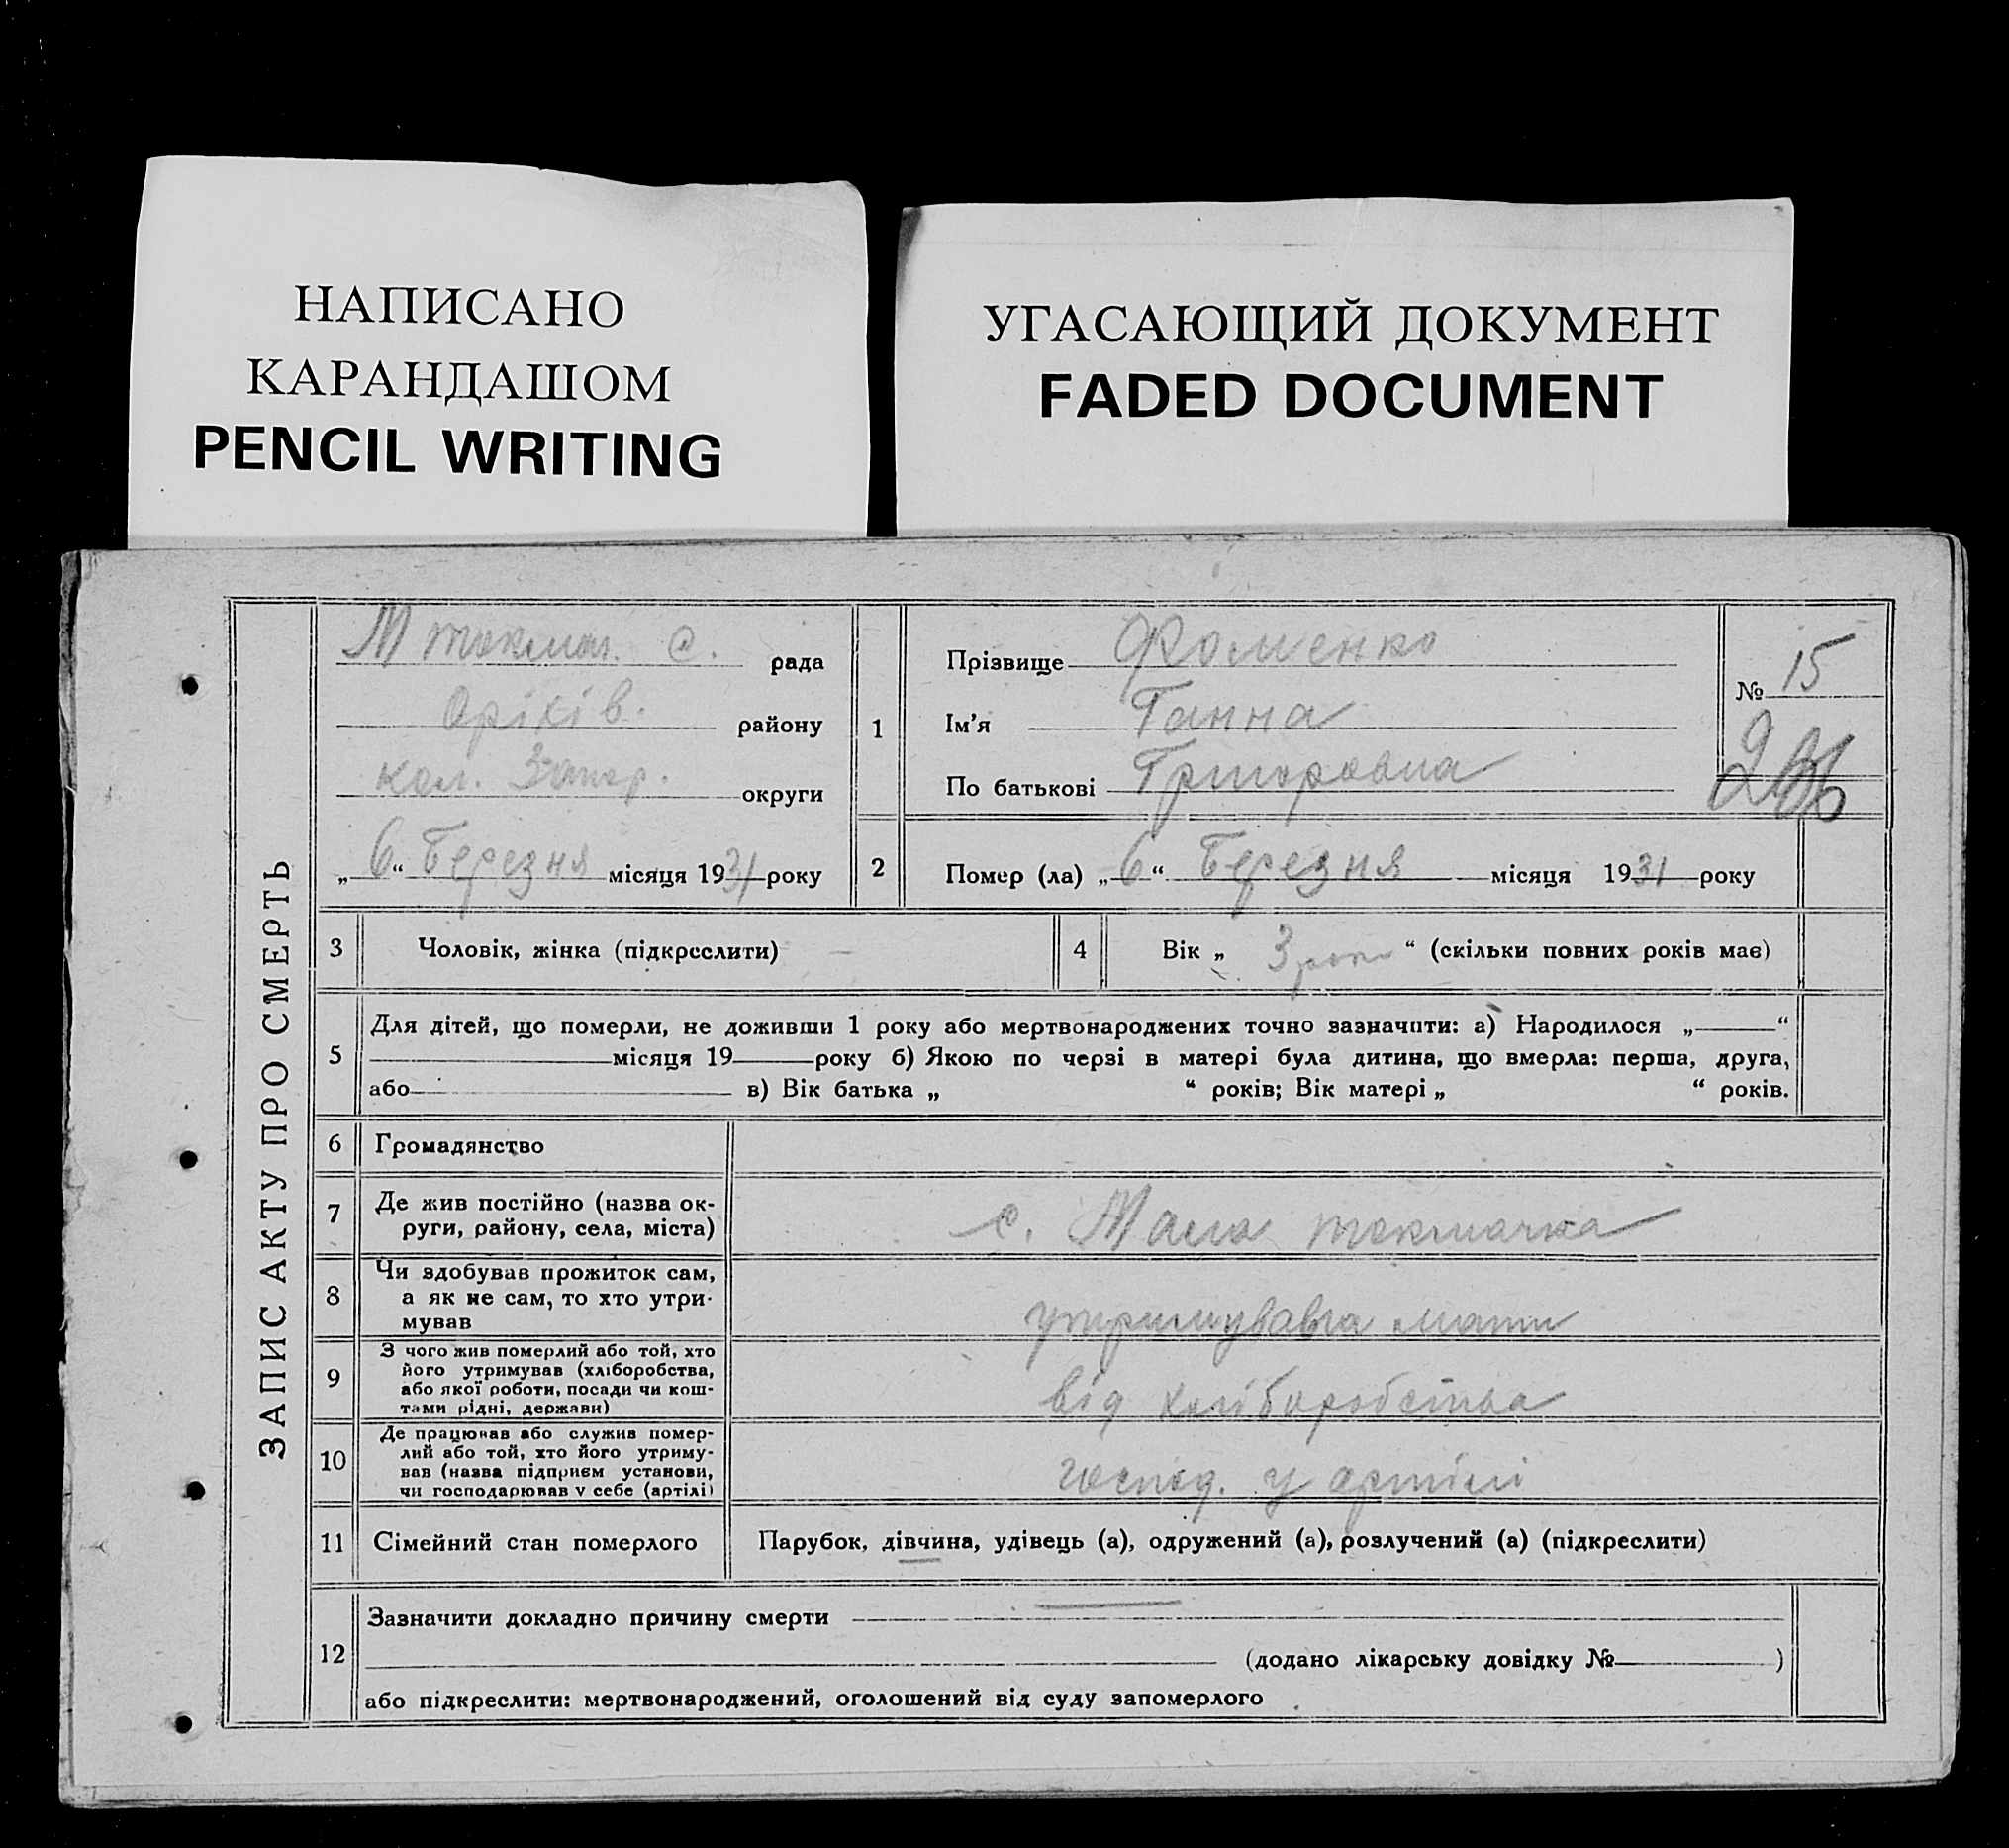 НАПИСАНО
КАРАНДАШОМ
PENCIL WRITING
УГАСАЮЩИЙ ДОКУМЕНТ
FADED DOCUMENT
ЗАПИС АКТУ ПРО СМЕРТЬ
М Токмач. с. рада
Оріхів. району
кол. Запор. округи
„6“ Березня місяця 1931 року
1
Прізвище Фоменко
Ім'я Ганна
По батькові Григоровна
№ 15
2
Помер (ла) „6“ Березня місяця 1931 року
3 Чоловік, жінка (підкреслити) —
4 Вік „ 3 роки “ (скільки повних років має)
5
Для дітей, що померли, не доживши 1 року або мертвонароджених точно зазначити: а) Народилося „ “
місяця 19 року б) Якою по черзі в матері була дитина, що вмерла: перша, друга,
або в) Вік батька „ “ років; Вік матері „ “ років.
6 Громадянство
7
Де жив постійно (назва ок-
руги, району, села, міста)
с. Мала Токмачка
8
Чи здобував прожиток сам,
а як не сам, то хто утри-
мував
утримувала мати
9
З чого жив померлий або той, хто
його утримував (хліборобства,
або якої роботи, посади чи кош-
тами рідні, держави)
від хліборобства
10
Де працював або служив помер-
лий або той, хто його утриму-
вав (назва підприєм установи,
чи господарював у себе (артілі)
господ. у артілі
11 Сімейний стан померлого
Парубок, дівчина, удівець (а), одружений (а), розлучений (а) (підкреслити)
12
Зазначити докладно причину смерти
(додано лікарську довідку № )
або підкреслити: мертвонароджений, оголошений від суду запомерлого